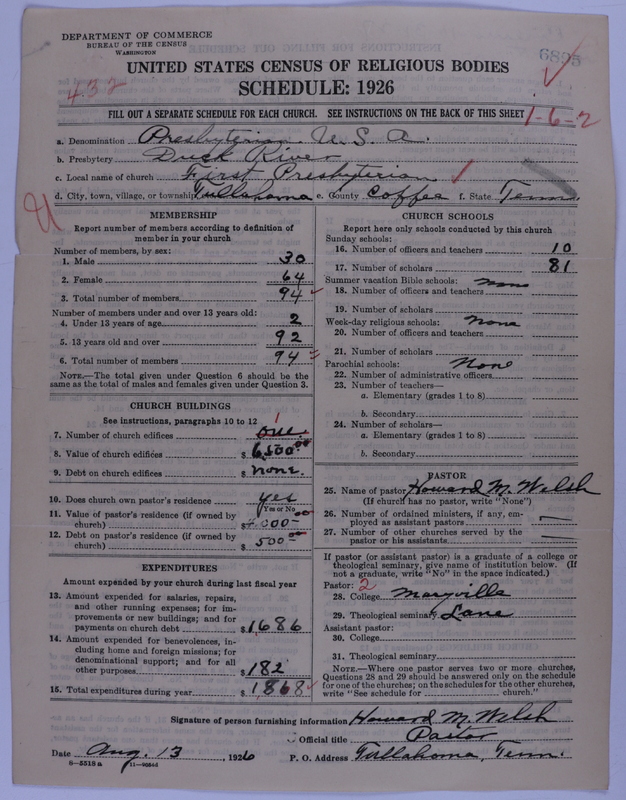 DEPARTMENT OF COMMERCE
BUREAU OF THE CENSUS
WASHINGTON
6895
UNITED STATES CENSUS OF RELIGIOUS BODIES
432
SCHEDULE: 1926
FILL OUT A SEPARATE SCHEDULE FOR EACH CHURCH. SEE INSTRUCTIONS ON THE BACK OF THIS SHEET
1-6-2
a. Denomination Presbyterian U.S.A.
b. Presbytery Duck River
c. Local name of church First Presbyterian
d. City, town, village, or township Tullahoma e. County Coffee f. State Tenn.
MEMBERSHIP
Report number of members according to definition of
member in your church
Number of members, by sex:
1. Male 30
2. Female 64
3. Total number of members 94
Number of members under and over 13 years old:
4. Under 13 years of age 2
5. 13 years old and over 92
6. Total number of members 94
NOTE.—The total given under Question 6 should be
the same as the total of males and females given under Question 3.
CHURCH BUILDINGS
See instructions, paragraphs 10 to 12
1
7. Number of church edifices one
8. Value of church edifices $ 6,500 00
9. Debt on church edifices $ none.
10. Does church own pastor's residence yes
Yes or No
11. Value of pastor's residence (if owned by
church) $ 000 00
12. Debt on pastor's residence (if owned by
church) $ 500 00
EXPENDITURES
Amount expended by your church during last fiscal year
13. Amount expended for salaries, repairs,
and other running expenses; for im-
provements or new buildings; and for
payments on church debt $ 1686
14. Amount expended for benevolences, in-
cluding home and foreign missions; for
denominational support; and for all
other purposes $ 182
15. Total expenditures during year $ 1868
CHURCH SCHOOLS
Report here only schools conducted by this church
Sunday schools:
16. Number of officers and teachers 10
17. Number of scholars 81
Summer vacation Bible schools: none
18. Number of officers and teachers
19. Number of scholars
Week-day religious schools: None
20. Number of officers and teachers
21. Number of scholars
Parochial schools: None
22. Number of administrative officers
23. Number of teachers—
a. Elementary (grades 1 to 8)
b. Secondary
24. Number of scholars—
a. Elementary (grades 1 to 8)
b. Secondary
PASTOR
25. Name of pastor Howard M. Welsh
(If church has no pastor, write "None")
26. Number of ordained ministers, if any, em-
ployed as assistant pastors
27. Number of other churches served by the
pastor or his assistants
If pastor (or assistant pastor) is a graduate of a college or
theological seminary, give name of institution below. (If
not a graduate, write "No" in the space indicated.)
Pastor: 2
28. College Maryville
29. Theological seminary Lane
Assistant pastor:
30. College
31. Theological seminary
NOTE.—Where one pastor serves two or more churches,
Questions 28 and 29 should be answered only on the schedule
for one of the churches; on the schedules for the other churches,
write "See schedule for church."
Signature of person furnishing information Howard M. Welsh
Official title Pastor
Date Aug. 13, 1926 P. O. Address Tullahoma, Tenn.
8—5518 a